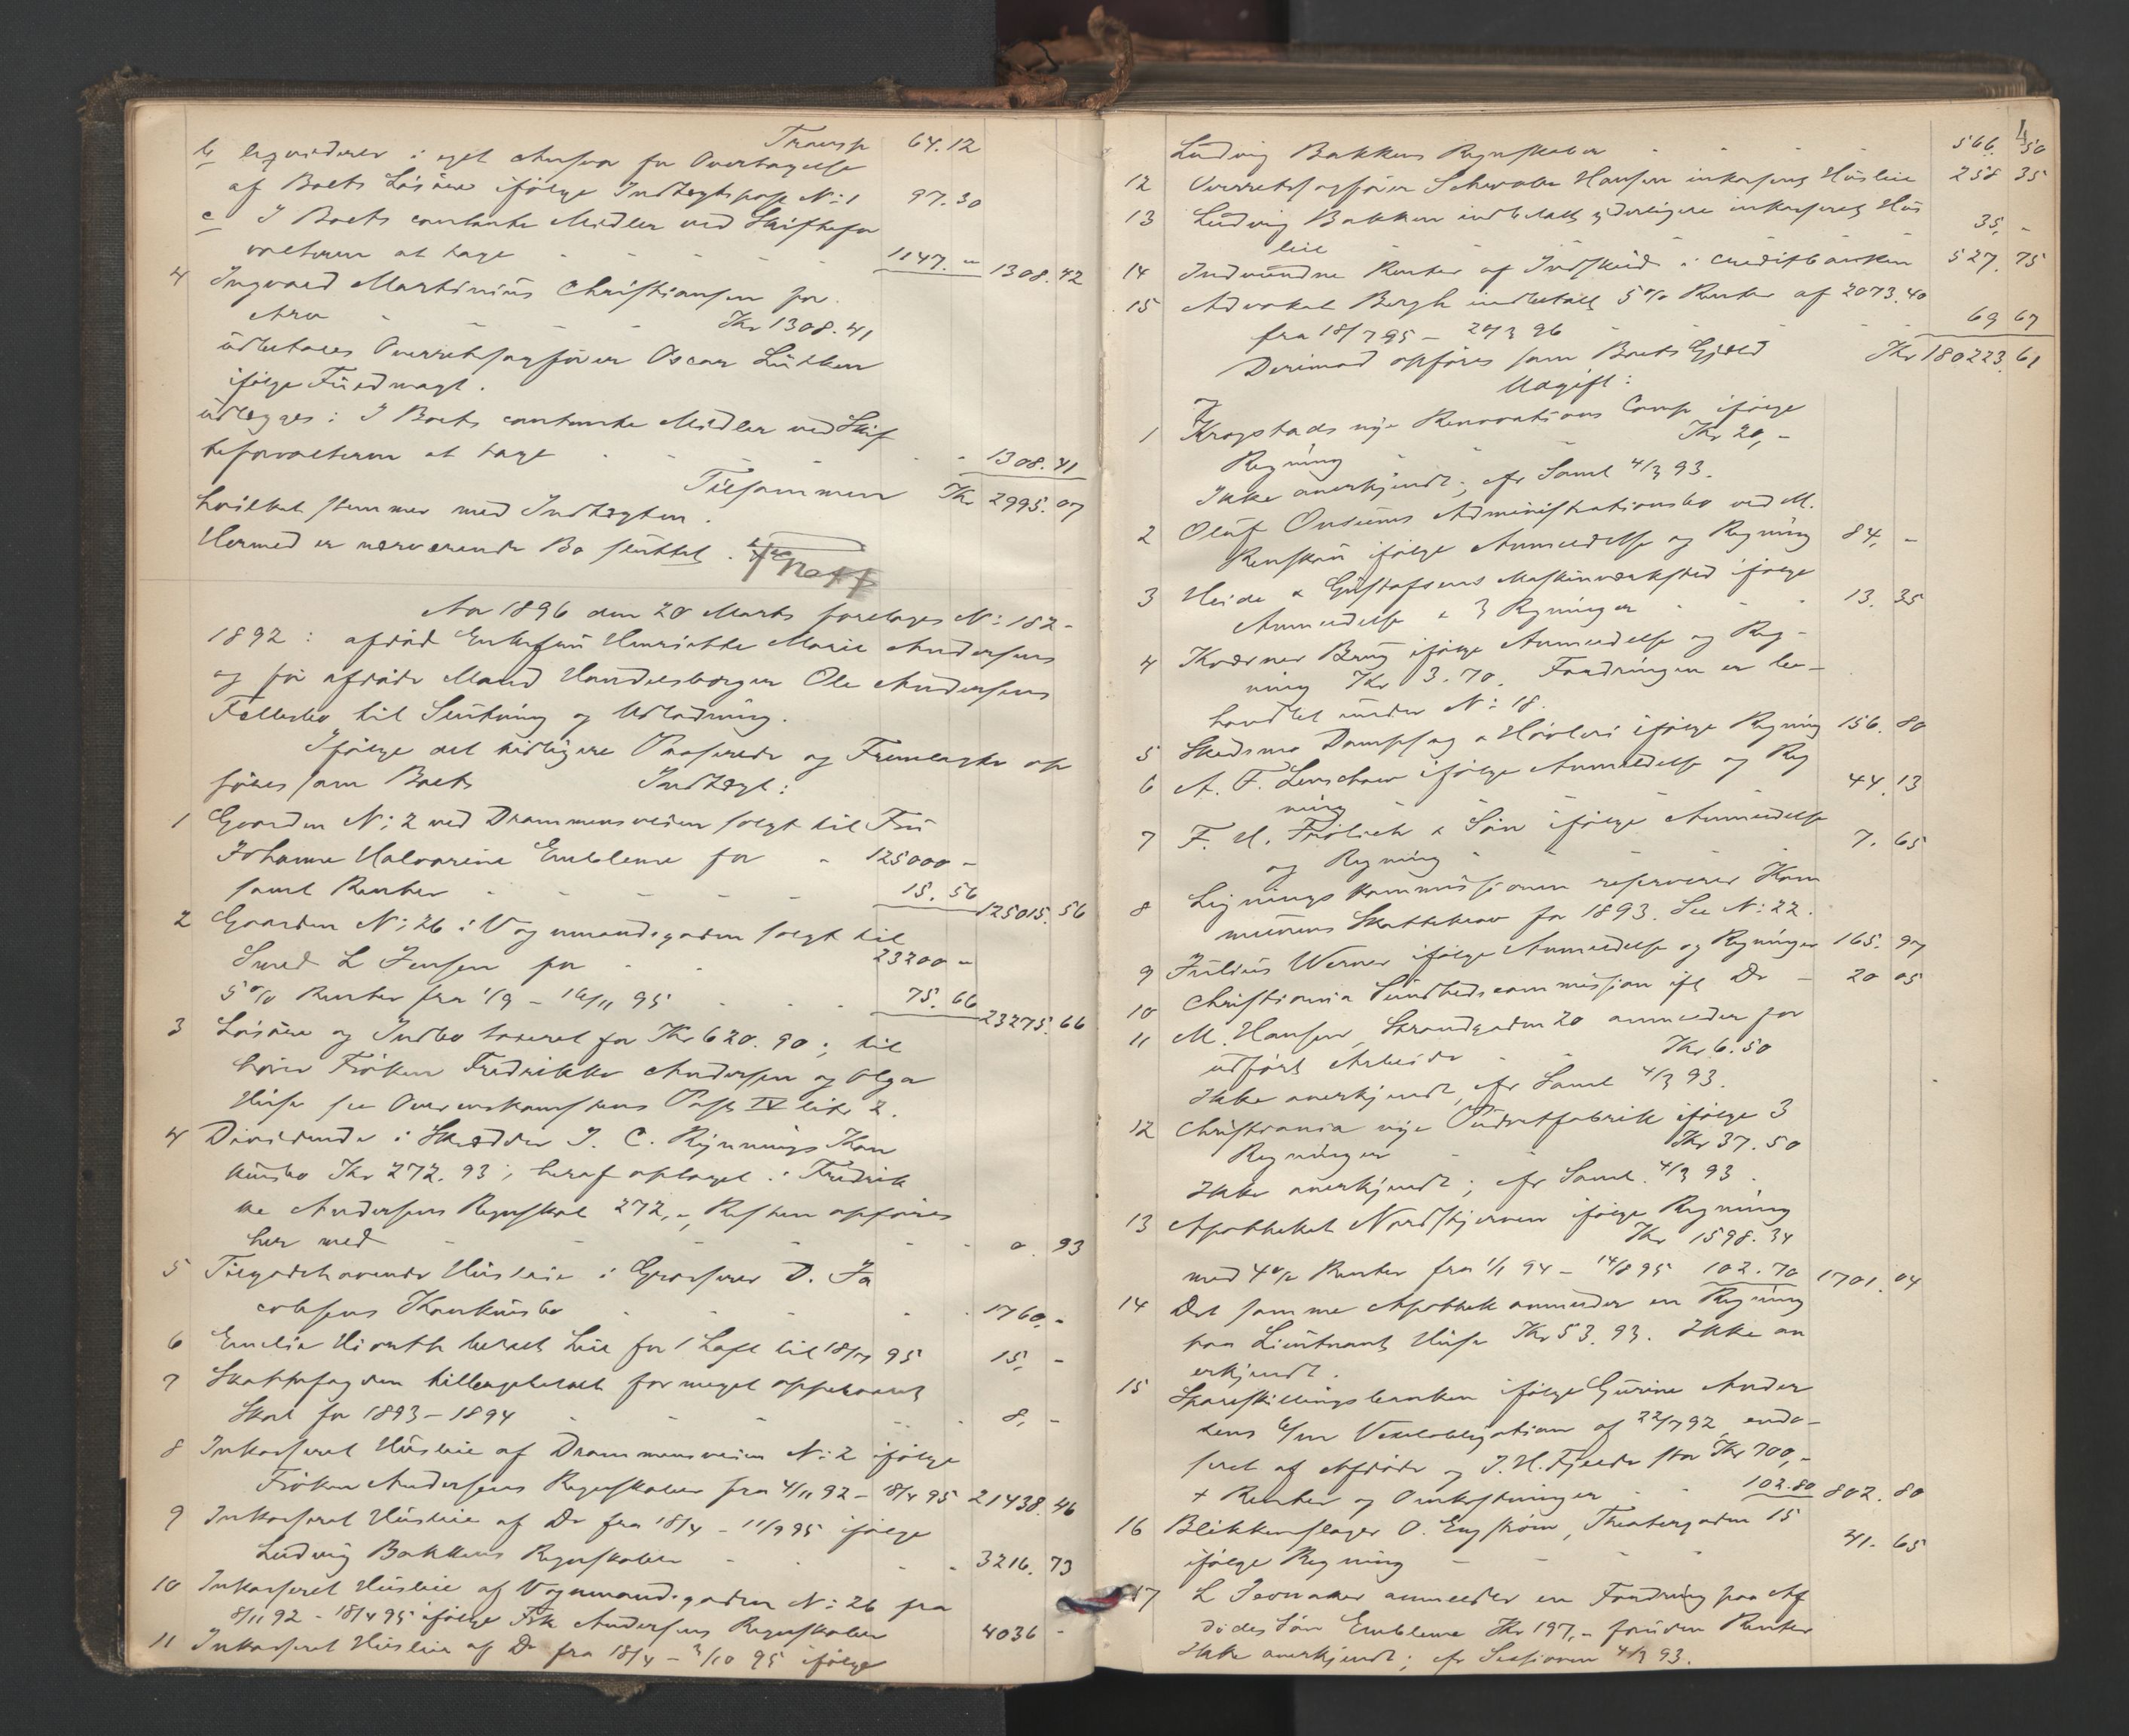 Transp 64.12
b liqviderer i eget Ansvar for Overtagelse
af Boets Løsøre ifølge Indtægtspost N: 1 97.30
c I Boets contante Midler ved Skiftefor
valteren at tage 1147. - 1308.42
4 Ingvard Martinius Christiansen for
Arv Kr 1308.41
udbetales Overretssagfører Oscar Lütken
ifølge Fuldmagt.
udlægges: I Boets contante Midler ved Skif
teforvalteren at tage 1308.41
Tilsammen Kr 2995.07
hvilket stemmer med Indtægten.
Hermed er nærværende Bo sluttet.
Aar 1896 den 20 Marts foretages N: 182-
1892: afdød Enkefru Henriette Marie Andersens
og før afdøde Mand Handelsborger Ole Andersens
Fællesbo til Slutning og Udlodning.
Ifølge det tidligere Passerede og Fremlagte op
føres som Boets Indtægt:
1 Gaarden N: 2 ved Drammensveien solgt til Fru
Johanne Halvorine Emblem for - 125000 -
samt Renter 15.56 125015.56
2 Gaarden N: 26 i Vognmandsgaden solgt til
Smed L Jensen for 23200 -
5 % Renter fra 1/9 - 16/11 95 75.66 23275.66
3 Løsøre og Indbo taxeret for Kr 620.90; til
hører Frøken Fredrikke Andersen og Olga
Huse se Overenskomstens Post IV litr 2.
4 Dividende i Skrædder J. C. Rynnings Kon
kursbo Kr 272.93; heraf optaget i Fredrik
ke Andersens Regnskab 272,-, Resten opføres
her med 0.93
5 Tilgodehavende Husleie i Grosserer D. Ja
cobsens Konkursbo 1760. -
6 Emelie Hiorth betalt Leie for 1 Loft til 18/4 95 15. -
7 Skattefogden tilbagebetalt for meget oppebaaret
Skat for 1893-1894 8. -
8 Inkasseret Husleie af Drammensveien N: 2 ifølge
Frøken Andersens Regnskaber fra 4/11 92 - 18/4 95 21438.46
9 Inkasseret Husleie af Do fra 18/4 - 11/9 95 ifølge
Ludvig Bakkens Regnskaber 3216.73
10 Inkasseret Husleie af Vognmandsgaden N: 26 fra
8/11 92 - 18/4 95 ifølge Frk Andersens Regnskaber 4036 -
11 Inkasseret Husleie af Do fra 18/4 - 3/10 95 ifølge
4
Ludvig Bakkens Regnskaber 566.50
12 Overretssagfører Schwabe Hansen inkasseret Husleie 258 35
13 Ludvig Bakken indbetalt yderligere inkasseret Hus
leie 35. -
14 Indvundne Renter af Indskud i Creditbanken 527.75
15 Advokat Bergh indbetalt 5 % Renter af 2073.40
fra 18/7 95 - 20/3 96 69 67
Kr 180223.61
Derimod opføres som Boets Gjæld
og Udgift:
1 Krogstads nye Renovations Comp ifølge
Regning Kr 20,-
Ikke anerkjendt; cfr Saml 4/3 93.
2 Oluf Onsums Administrationsbo ved M.
Renskou ifølge Anmeldelse og Regning 84. -
3 Heide & Gustafsens Maskinværksted ifølge
Anmeldelse & 3 Regninger 13.35
4 Kværner Brug ifølge Anmeldelse og Reg-
ning Kr 3.70. Fordringen er be-
handlet under N: 18.
5 Skedsmo Dampsag & Høvleri ifølge Regning 156.80
6 A. F. Lerschow ifølge Anmeldelse og Reg
ning 44.13
7 F. H. Frølich & Søn ifølge Anmeldelse
og Regning 7.65
8 Ligningskommissionen reserverer Kom
munens Skattekrav for 1893. Se N: 22.
9 Julius Werner ifølge Anmeldelse og Regninger 165.97
10 Christiania Sundhedscommission ifl Do - 20 05
11 M. Hansen, Strandgaden 20 anmelder for
udført Arbeide Kr 6.50
Ikke anerkjendt, cfr Saml 4/3 93.
12 Christiania nye Pudretfabrik ifølge 3
Regninger Kr 37.50
Ikke anerkjendt; cfr Saml. 4/3 93.
13 Apotheket Nordstjernen ifølge Regning
Kr 1598.34
med 4 % Renter fra 1/1 94 - 14/8 95 102.70 1701.04
14 Det samme Apothek anmelder en Regning
paa Lieutnant Huse Kr 53.93. Ikke an
erkjendt.
15 Spareskillingsbanken ifølge Gurine Ander
sens Vexelobligation af 22/7 92, endos-
seret af Afdøde og J. H. Fjelde stor Kr 700,-
+ Renter og Omkostninger 102.80 802.80
16 Blikkenslager O. Engstrøm, Theatergaden 15
ifølge Regning 41.65
17 L Isonaker anmelder en Fordring paa Af
dødes Søn Emblem Kr 197,- foruden Renter
Ikke anerkjendt; cfr Sessionen 4/3 93.